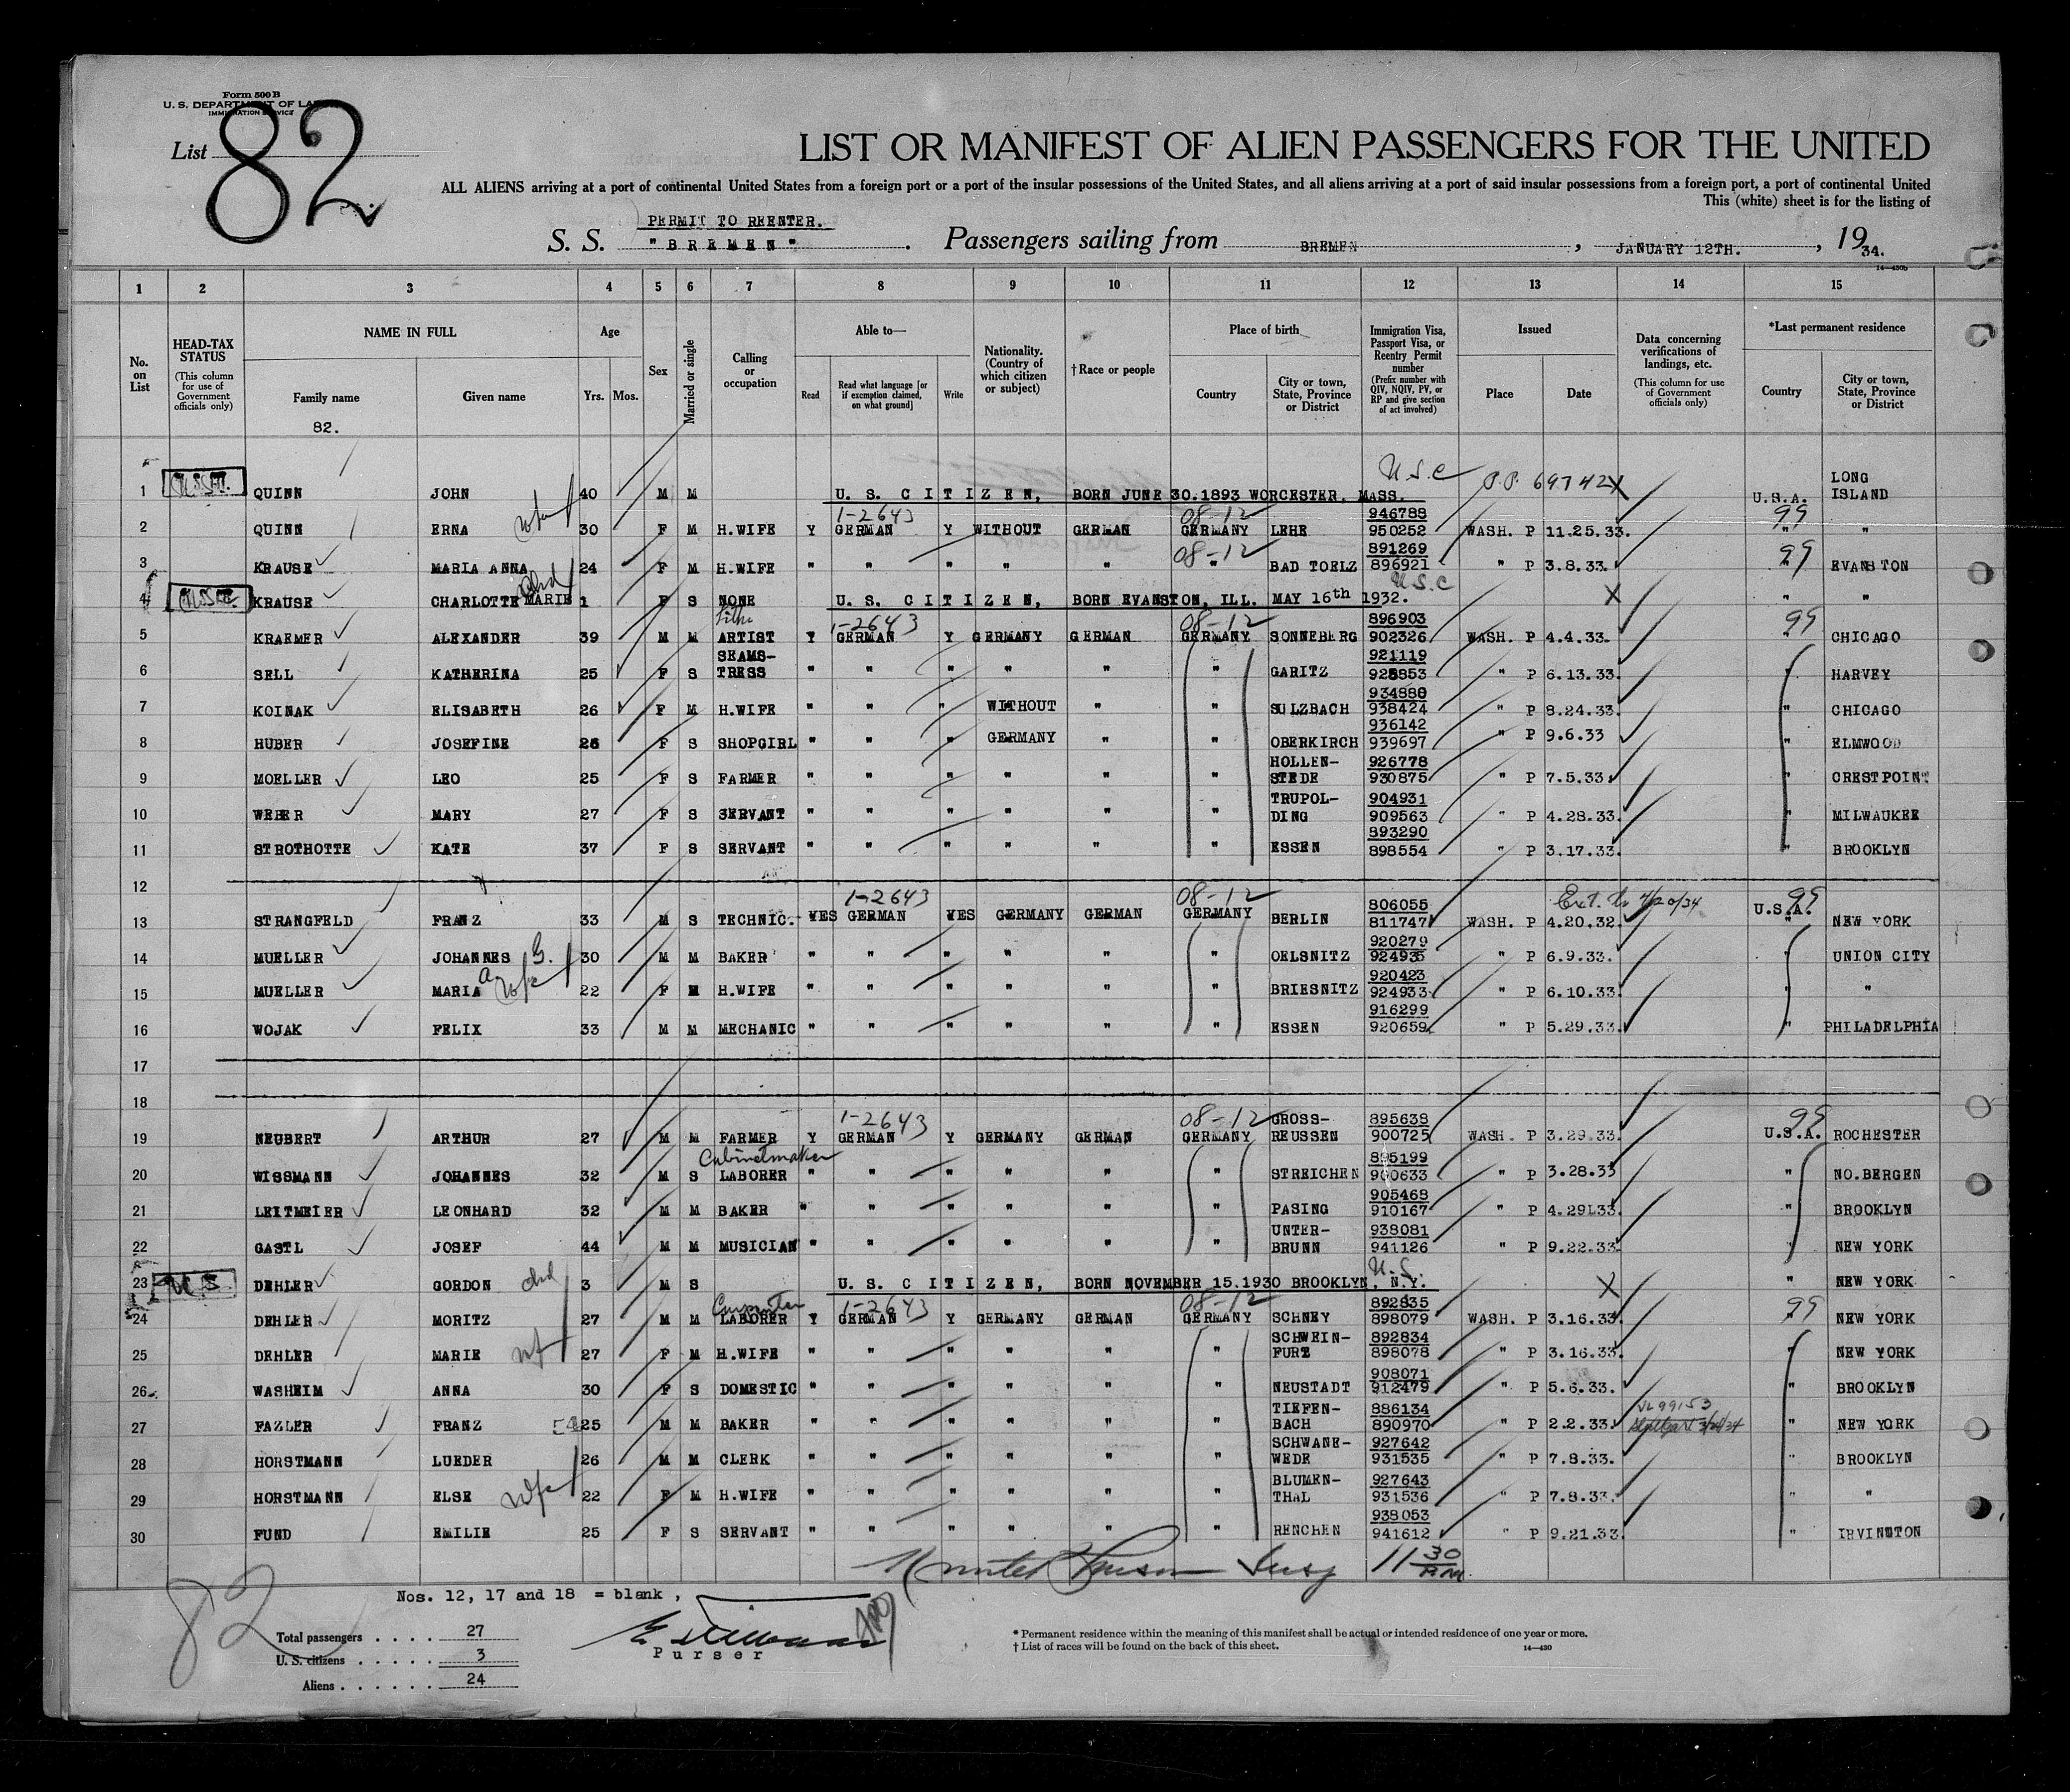 Form 500 B
U. S. DEPARTMENT OF LA
IMMIGRATION SERVICE
List 82
LIST OR MANIFEST OF ALIEN PASSENGERS FOR THE UNITED
ALL ALIENS arriving at a port of continental United States from a foreign port or a port of the insular possessions of the United States, and all aliens arriving at a port of said insular possessions from a foreign port, a port of continental United
This (white) sheet is for the listing of
PERMIT TO REENTER.
S. S. "BREMEN". Passengers sailing from BREMEN, JANUARY 12TH., 1934.
14—430b
1 2 3 4 5 6 7 8 9 10 11 12 13 14 15
No. on List
HEAD-TAX STATUS (This column for use of Government officials only)
NAME IN FULL Family name Given name
Age Yrs. Mos.
Sex
Married or single
Calling or occupation
Able to— Read Read what language [or if exemption claimed, on what ground] Write
Nationality. (Country of which citizen or subject)
†Race or people
Place of birth Country City or town, State, Province or District
Immigration Visa, Passport Visa, or Reentry Permit number (Prefix number with QIV, NQIV, PV, or RP and give section of act involved)
Issued Place Date
Data concerning verifications of landings, etc. (This column for use of Government officials only)
*Last permanent residence Country City or town, State, Province or District
82.
1 QUINN JOHN 40 M M U. S. CITIZEN, BORN JUNE 30.1893 WORCESTER, MASS. U.S.C P.P. 69742 X U.S.A. LONG ISLAND
2 QUINN ERNA wife 30 F M H.WIFE Y GERMAN 1-2643 Y WITHOUT GERMAN 08-12 GERMANY LEHE 946788 950252 WASH. P 11.25.33. 99 " "
3 KRAUSE MARIA ANNA 24 F M H.WIFE " " " " " 08-12 " BAD TOELZ 891269 896921 " P 3.8.33. 99 " EVANSTON
4 KRAUSE CHARLOTTE MARIE chd 1 F S NONE U. S. CITIZEN, BORN EVANSTON, ILL. MAY 16th 1932. U.S.C X " "
5 KRAEMER ALEXANDER 39 M M Litho ARTIST Y GERMAN 1-2643 Y GERMANY GERMAN 08-12 GERMANY SONNEBERG 896903 902326 WASH. P 4.4.33. 99 " CHICAGO
6 SELL KATHERINA 25 F S SEAMS-TRESS " " " " " " GARITZ 921119 925853 " P 6.13.33. " HARVEY
7 KOINAK ELISABETH 26 F M H.WIFE " " " WITHOUT " " SULZBACH 934880 938424 " P 8.24.33. " CHICAGO
8 HUBER JOSEFINE 26 F S SHOPGIRL " " " GERMANY " " OBERKIRCH 936142 939697 " P 9.6.33 " ELMWOOD
9 MOELLER LEO 25 F S FARMER " " " " " " HOLLEN-STEDE 926778 930875 " P 7.5.33. " CRESTPOINT
10 WEBER MARY 27 F S SERVANT " " " " " " TRUPOL-DING 904931 909563 " P 4.28.33. " MILWAUKEE
11 STROTHOTTE KATE 37 F S SERVANT " " " " " " ESSEN 893290 898554 " P 3.17.33. " BROOKLYN
12
13 STRANGFELD FRANZ 33 M S TECHNIC. YES GERMAN 1-2643 YES GERMANY GERMAN 08-12 GERMANY BERLIN 806055 811747 WASH. P 4.20.32. Ext. to 4/20/34 99 U.S.A. NEW YORK
14 MUELLER JOHANNES G. 30 M M BAKER " " " " " " OELSNITZ 920279 924935 " P 6.9.33. " UNION CITY
15 MUELLER MARIA a wife 22 F M H.WIFE " " " " " " BRIESNITZ 920423 924933 " P 6.10.33. " "
16 WOJAK FELIX 33 M M MECHANIC " " " " " " ESSEN 916299 920659 " P 5.29.33. " PHILADELPHIA
17
18
19 NEUBERT ARTHUR 27 M M FARMER Y GERMAN 1-2643 Y GERMANY GERMAN 08-12 GERMANY GROSS-REUSSEN 895638 900725 WASH. P 3.29.33. 99 U.S.A. ROCHESTER
20 WISSMANN JOHANNES 32 M S Cabinetmaker LABORER " " " " " " STREICHEN 895199 900633 " P 3.28.33 " NO.BERGEN
21 LEITMEIER LEONHARD 32 M M BAKER " " " " " " PASING 905468 910167 " P 4.29.33. " BROOKLYN
22 GASTL JOSEF 44 M M MUSICIAN " " " " " " UNTER-BRUNN 938081 941126 " P 9.22.33. " NEW YORK
23 U.S. DEHLER GORDON chd 3 M S U. S. CITIZEN, BORN NOVEMBER 15.1930 BROOKLYN, N.Y. U.S. X " NEW YORK
24 DEHLER MORITZ 27 M M Carpenter LABORER Y GERMAN 1-2643 Y GERMANY GERMAN 08-12 GERMANY SCHNEY 892835 898079 WASH. P 3.16.33. 99 " NEW YORK
25 DEHLER MARIE wf 27 F M H.WIFE " " " " " " SCHWEIN-FURT 892834 898078 " P 3.16.33. " NEW YORK
26 WASHEIM ANNA 30 F S DOMESTIC " " " " " " NEUSTADT 908071 912479 " P 5.6.33. " BROOKLYN
27 FAZLER FRANZ 25 M M BAKER " " " " " " TIEFEN-BACH 886134 890970 " P 2.2.33. VL99153 " NEW YORK
28 HORSTMANN LUEDER 26 M M CLERK " " " " " " SCHWANE-WEDE 927642 931535 " P 7.8.33. " BROOKLYN
29 HORSTMANN ELSE wife 22 F M H.WIFE " " " " " " BLUMEN-THAL 927643 931536 " P 7.8.33. " "
30 FUND EMILIE 25 F S SERVANT " " " " " " RENCHEN 938053 941612 " P 9.21.33. " IRVINGTON
11 30 P.M.
Nos. 12, 17 and 18 = blank,
82
Total passengers . . . . 27
U. S. citizens . . . . . 3
Aliens . . . . . . 24
Purser
* Permanent residence within the meaning of this manifest shall be actual or intended residence of one year or more.
† List of races will be found on the back of this sheet. 14—430